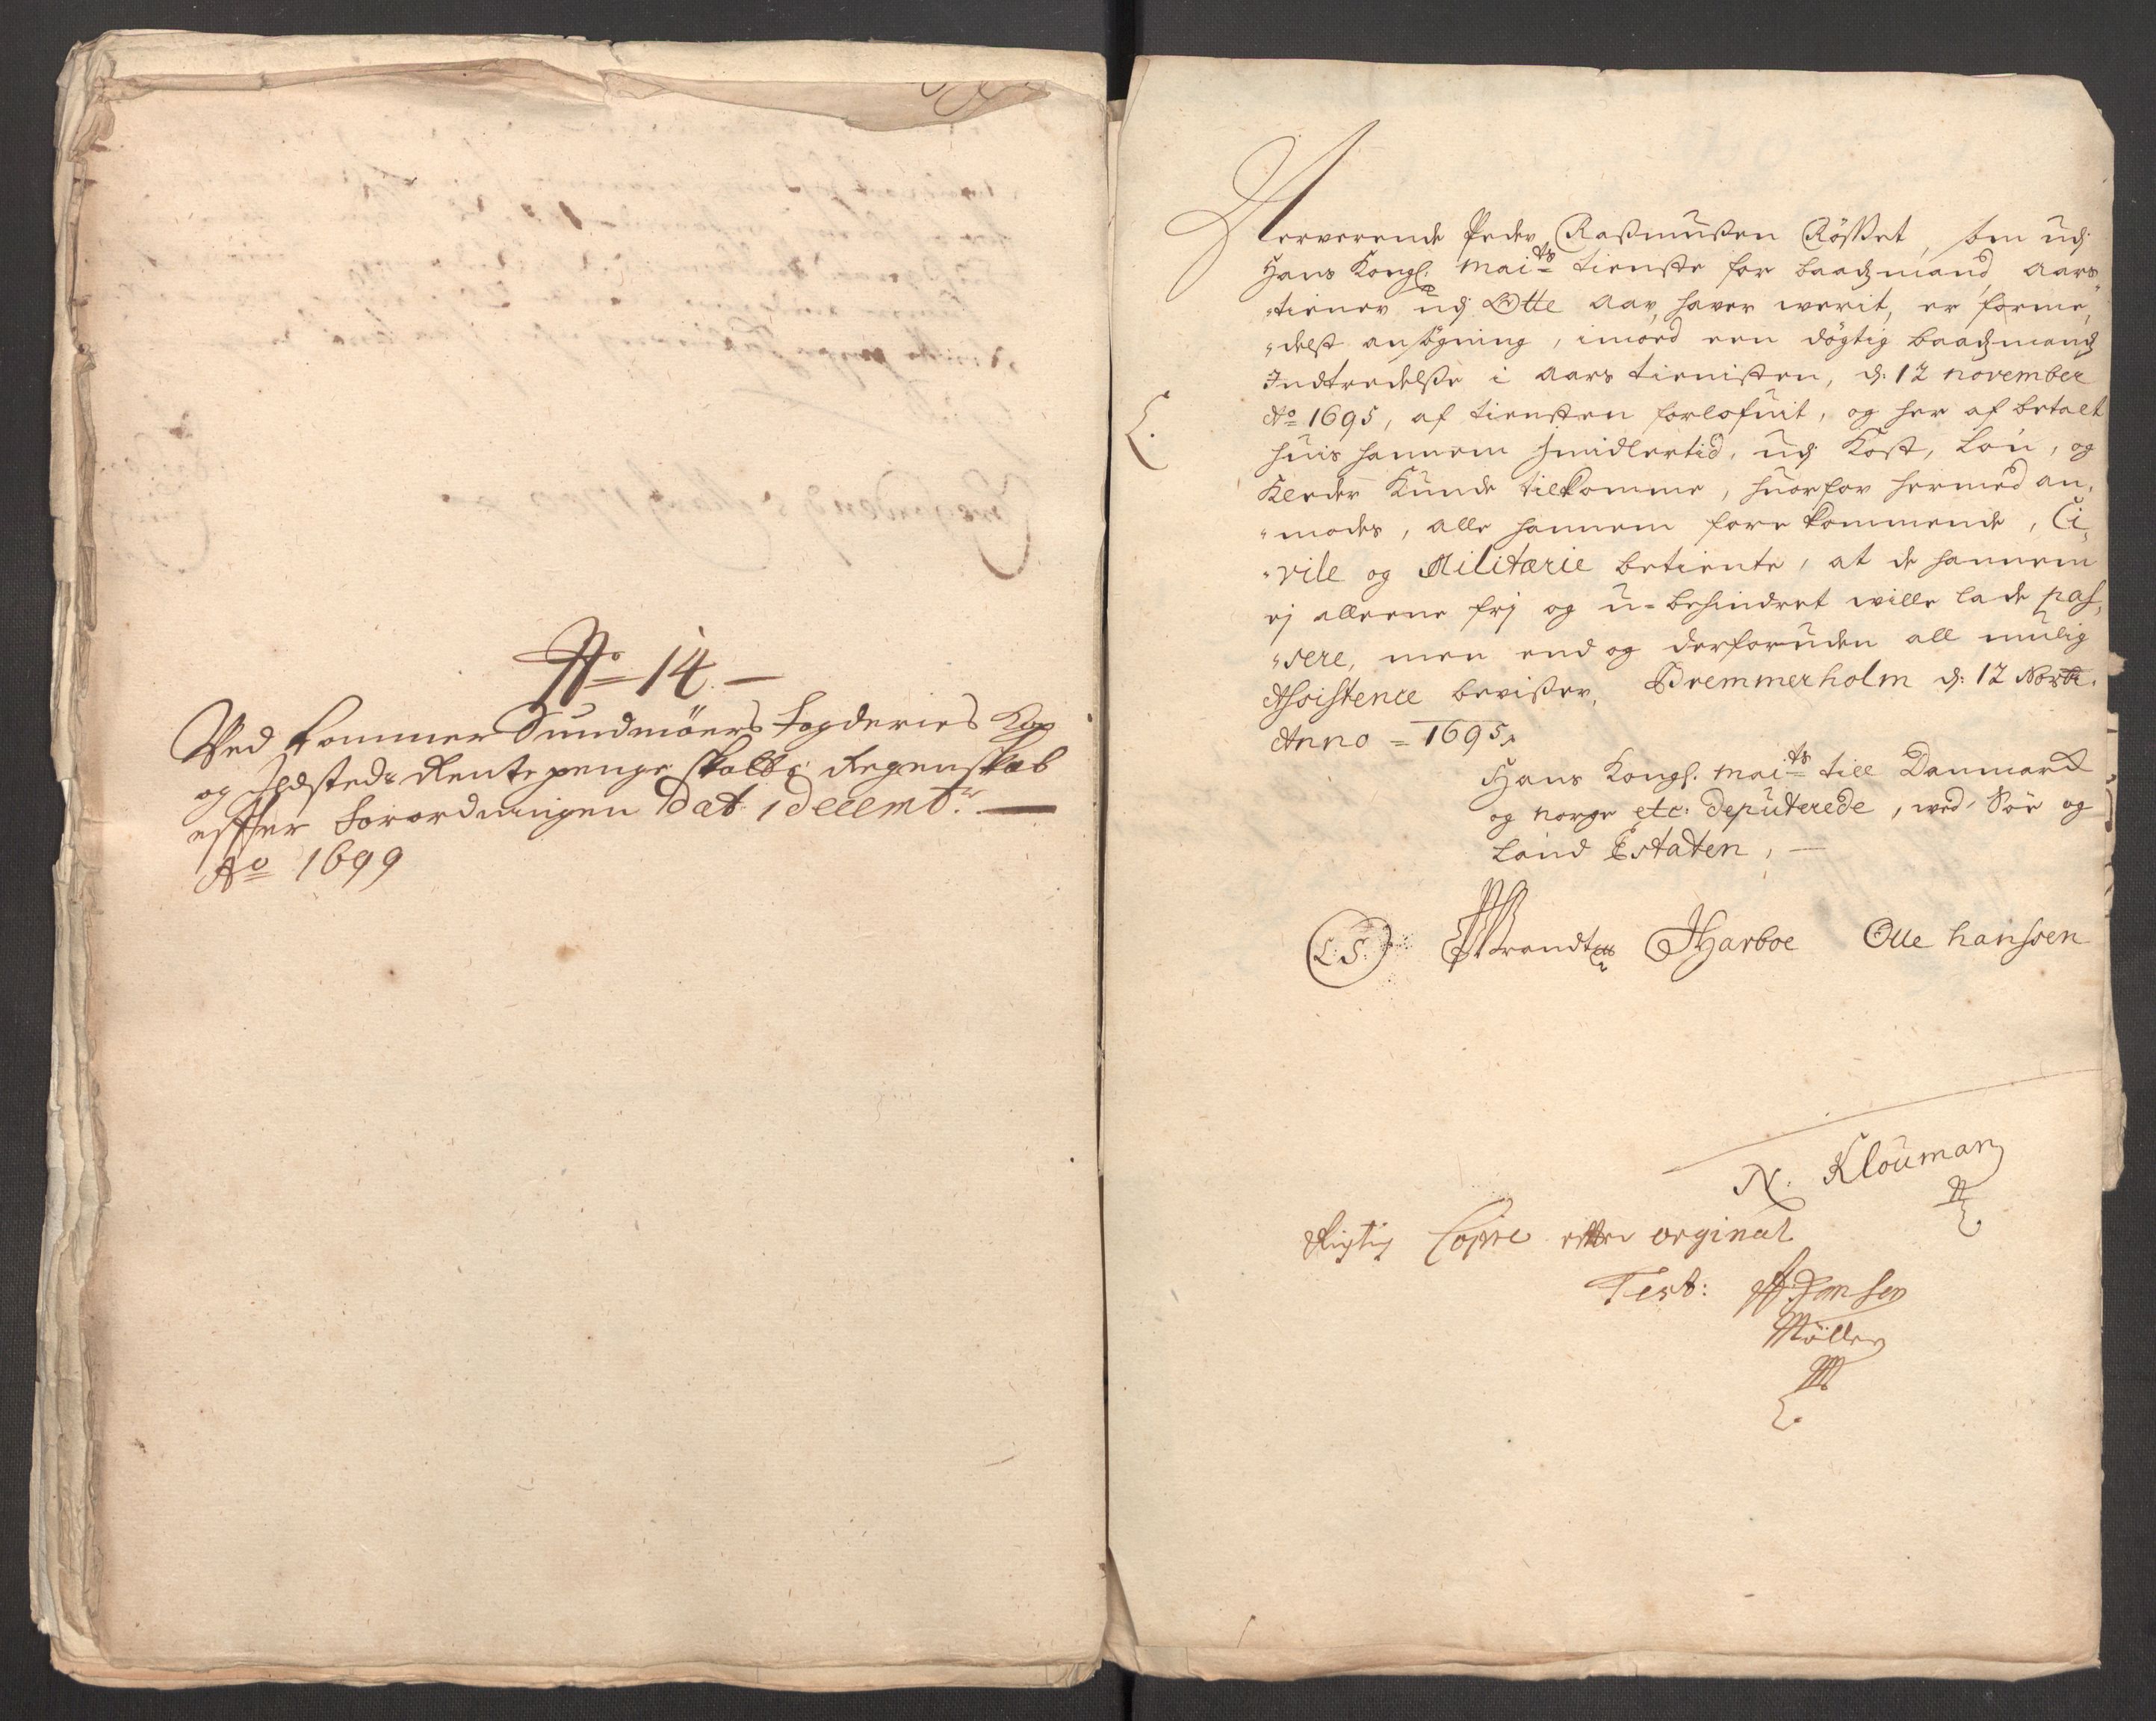 No 14. —
Ved kommer Sundmöers fogderies Kop
og Ildsteds Rentepenge skatts Regenskab
effter Forordningen Dat 1 Decembr. —
Ao 1699
Nerverende Peder Rasmusen Rösset, som udj
Hans Kongl. Maits tieniste for baadzmand, aars
tiener udj Otte aar, haver werit, er forme,
delst ansögning, imod een dögtig baadzmandz
Indtredelse i aars tienisten, d: 12 november
Ao 1695, af tienesten forlofuit, og her af betalt
huis hannem Imidlertid, udj Kost, Lön, og
Kleder Kunde tilkomme, huorfor hermed an,
modes, alle hannem fore kommende, Ci,
vile og Militarie betiente, at de hannem
ej alleene frj og u-behindret wille lade pas,
sere, men end og derforuden all mulig
Assistence beviser, Bremmerholm d: 12 Novbr.
Anno = 1695.
Hans Kongl. Maits till Danmark
og norge etc: Deputerede, wed Söe og
Land Estaten, —
L.S. Brandt JHarboe Olle hanssen
N. Klouman
Rigtig Copie efter orginal
Test: Jensen
Möller